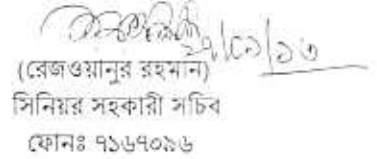 ২৭/০১/১৩
(রেজওয়ানুর রহমান)
সিনিয়র সহকারী সচিব
ফোনঃ ৭১৬৭০৯৬